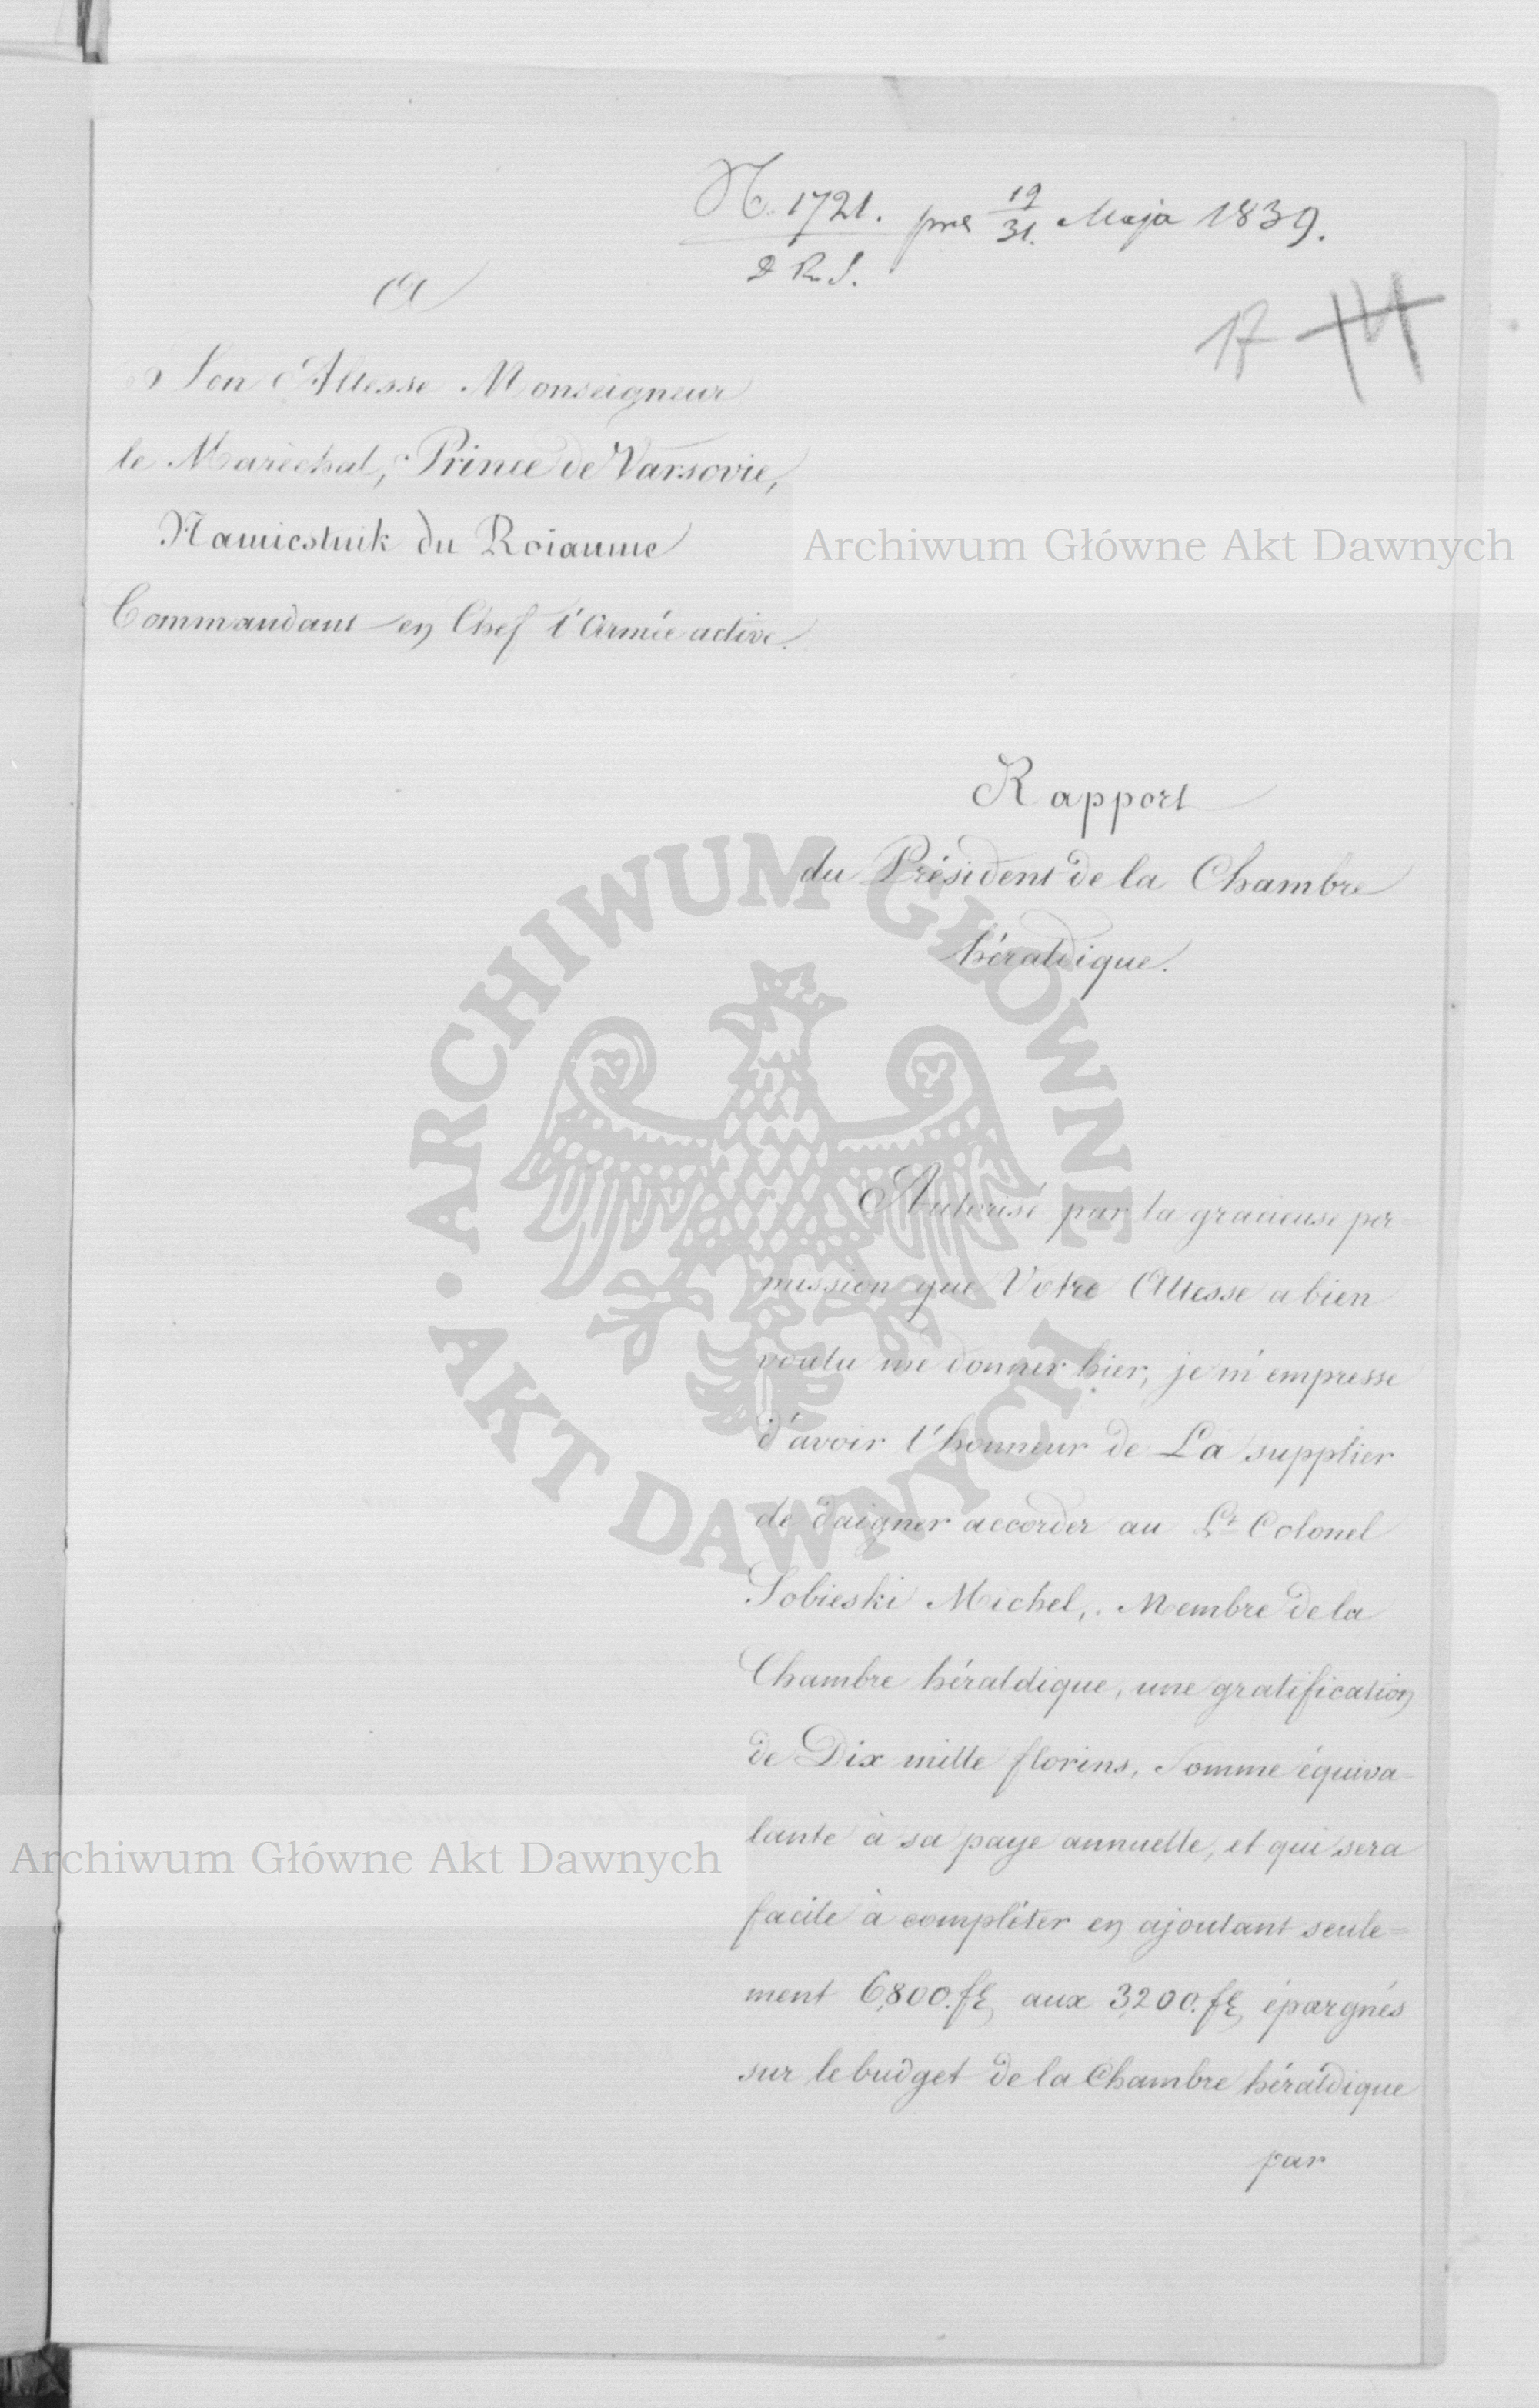 N. 1721. pres 19/31. Maja 1839.
R. S.
17 14
A
Son Altesse Monseigneur
le Maréchal, Prince de Varsovie,
Namiestnik du Roiaume
Commandant en Chef l'Armée active.
Archiwum Główne Akt Dawnych
Rapport
du Président de la Chambre
héraldique.
ARCHIWUM GŁÓWNE AKT DAWNYCH
Autorisé par la gracieuse per
mission que Votre Altesse a bien
voulu me donner hier, je m'empresse
d'avoir l'honneur de La supplier
de daigner accorder au Lt Colonel
Sobieski Michel, Membre de la
Chambre héraldique, une gratification
de Dix mille florins, Somme équiva-
lante à sa paye annuelle, et qui sera
Archiwum Główne Akt Dawnych
facile à compléter en ajoutant seule=
ment 6,800. fl, aux 3,200. fl, épargnés
sur le budget de la Chambre héraldique
par